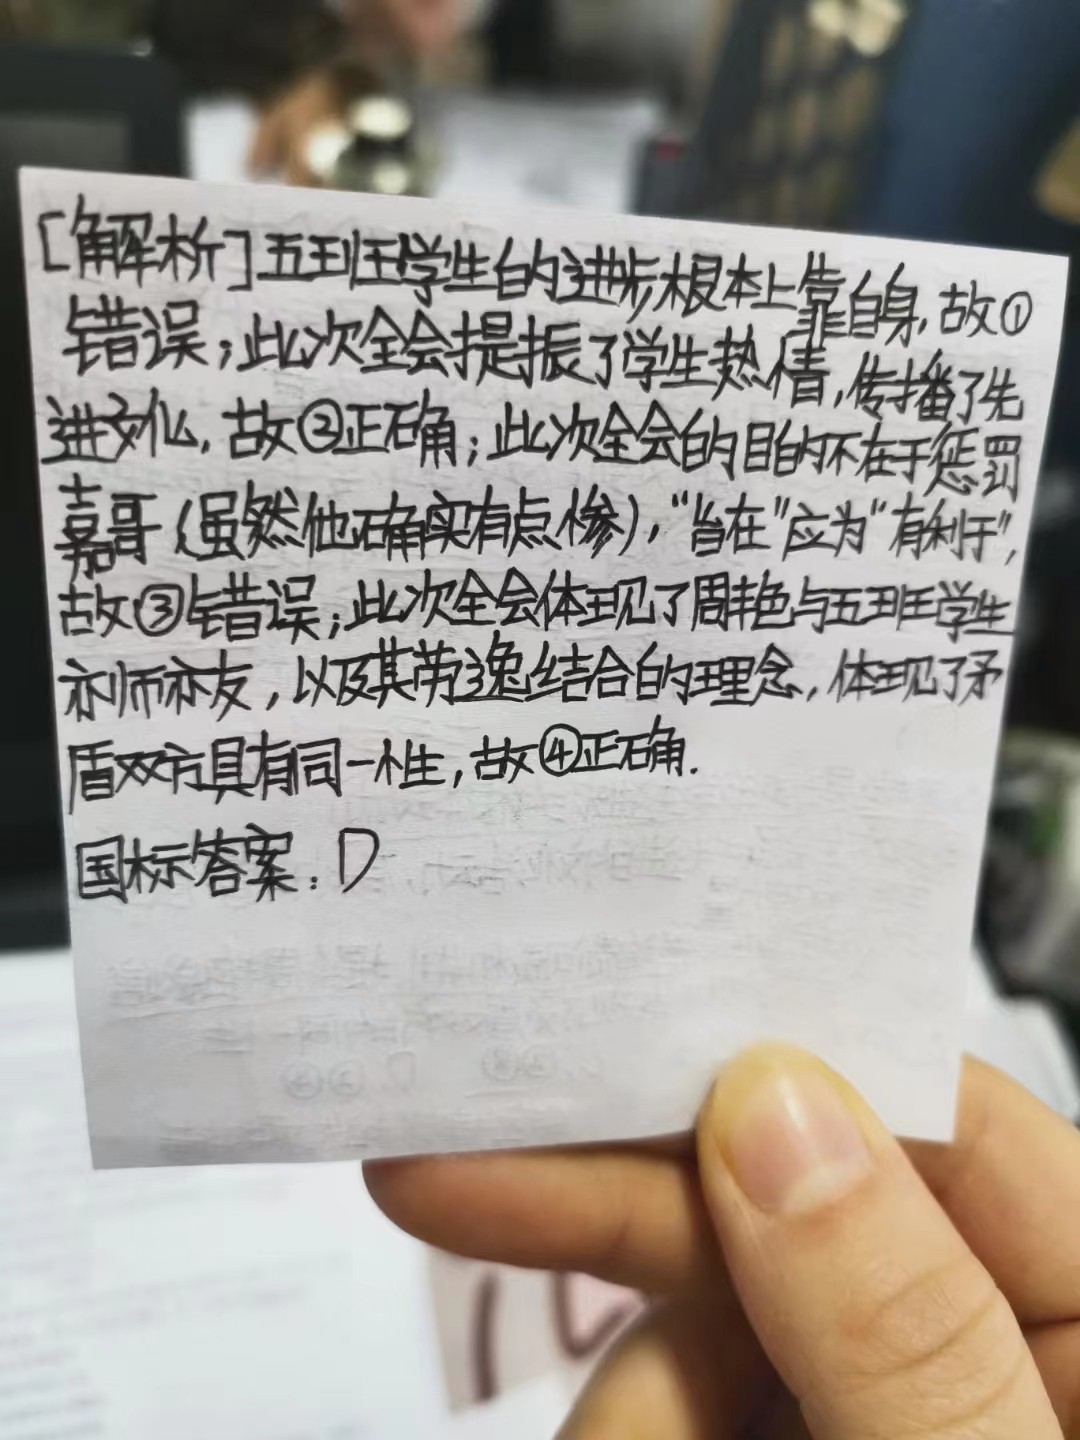 [解析]五班学生的进步根本上靠自身,故①
错误;此次全会提振了学生热情,传播了先
进文化,故②正确;此次全会的目的不在于惩罚
嘉哥(虽然他确实有点惨),“旨在”应为“有利于”,
故③错误;此次全会体现了周艳与五班学生
亦师亦友,以及其劳逸结合的理念,体现了矛
盾双方具有同一性,故④正确.
国标答案:D